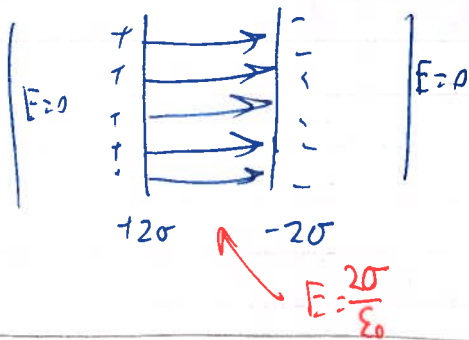 + -
E=0 + - E=0
+ -
+ -
+ -
+2σ -2σ
E = 2σ/ε₀